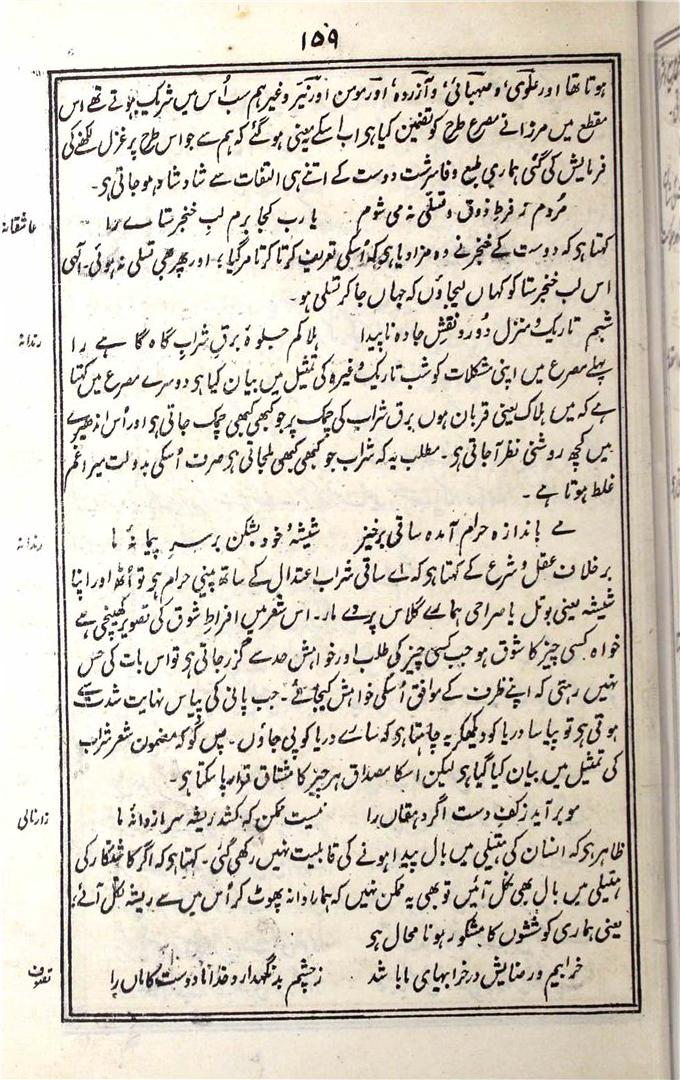 ۱۵۹
ہوتا تھا اور علوی، وصہبائی، وآزردہ، اور مومن اور نیر وغیرہم سب اُس میں شریک ہوتے تھے اس
مقطع میں مرزا نے مصرع طرح کو تضمین کیا ہی اب اسکے یہ معنی ہو گئے کہ ہم سے جو اس طرح پر غزل لکھنے کی
فرمایش کی گئی ہماری طبع وفا سرشت دوست کے اتنے ہی التفات سے شاد شاد ہو جاتی ہی۔
مُردم ز فرطِ ذوق و تسلی نہ می شوم یا رب کجا برم لبِ خنجر ستاے را
عاشقانہ
کہتا ہی کہ دوست کے خنجر نے وہ مزا دیا ہی کہ اُسکی تعریف کرتا کرتا مر گیا؛ اور پھر بھی تسلی نہ ہوئی۔ الٰہی
اس لب خنجر ستا کو کہاں لیجاؤں کہ جہاں جا کر تسلی ہو۔
شبم تاریک و منزل دور و نقشِ جادہ ناپیدا ہلاکم جلوۂ برقِ شرابِ گاہ گاہے را
رندانہ
پہلے مصرع میں اپنی مشکلات کو شب تاریک وغیرہ کی تمثیل میں بیان کیا ہی دوسرے مصرع میں کہتا
ہے کہ میں ہلاک یعنی قربان ہوں برق شراب کی چمک پر جو کبھی کبھی چمک جاتی ہی اور اُس اندھیرے
میں کچھ روشنی نظر آ جاتی ہی۔ مطلب یہ کہ شراب جو کبھی کبھی ملجاتی ہی صرف اُسکی بدولت میرا غم
غلط ہوتا ہے۔
مے باندازہ حرام آمدہ ساقی برخیز شیشۂ خود بشکن بر سرِ پیمانۂ ما
رندانہ
برخلاف عقل و شرع کے کہتا ہی کہ اے ساقی شراب اعتدال کے ساتھ پینی حرام ہی تو اُٹھ اور اپنا
شیشہ یعنی بوتل یا صراحی ہمارے گلاس پر دے مار۔ اس شعر میں افراطِ شوق کی تصویر کھینچی ہے
خواہ کسی چیز کا شوق ہو جب کسی چیز کی طلب اور خواہش حد سے گزر جاتی ہی تو اس بات کی حس
نہیں رہتی کہ اپنے ظرف کے موافق اُسکی خواہش کیجائے۔ جب پانی کی پیاس نہایت شدت سے
ہوتی ہی تو پیاسا دریا کو دیکھکر یہ چاہتا ہی کہ سارے دریا کو پی جاؤں۔ پس گو کہ مضمون شعر شراب
کی تمثیل میں بیان کیا گیا ہی لیکن اسکا مصداق ہر چیز کا مشتاق قرار پا سکتا ہی۔
مو برآید ز کفِ دست اگر دہقاں را نیست ممکن کہ کشد ریشہ سر از دانۂ ما
زار نالی
ظاہر ہی کہ انسان کی ہتیلی میں بال پیدا ہونے کی قابلیت نہیں رکھی گئی۔ کہتا ہی کہ اگر کاشتکار کی
ہتیلی میں بال بھی نکل آئیں تو بھی یہ ممکن نہیں کہ ہمارا دانہ پھوٹ کر اُس میں سے ریشہ نکل آئے؛
یعنی ہماری کوششوں کا مشکور ہونا محال ہی
خرابیم و رضایش در خرابیہای ما باشد ز چشم بد نگہدارد خدا ما دوست کاماں را
تصوف